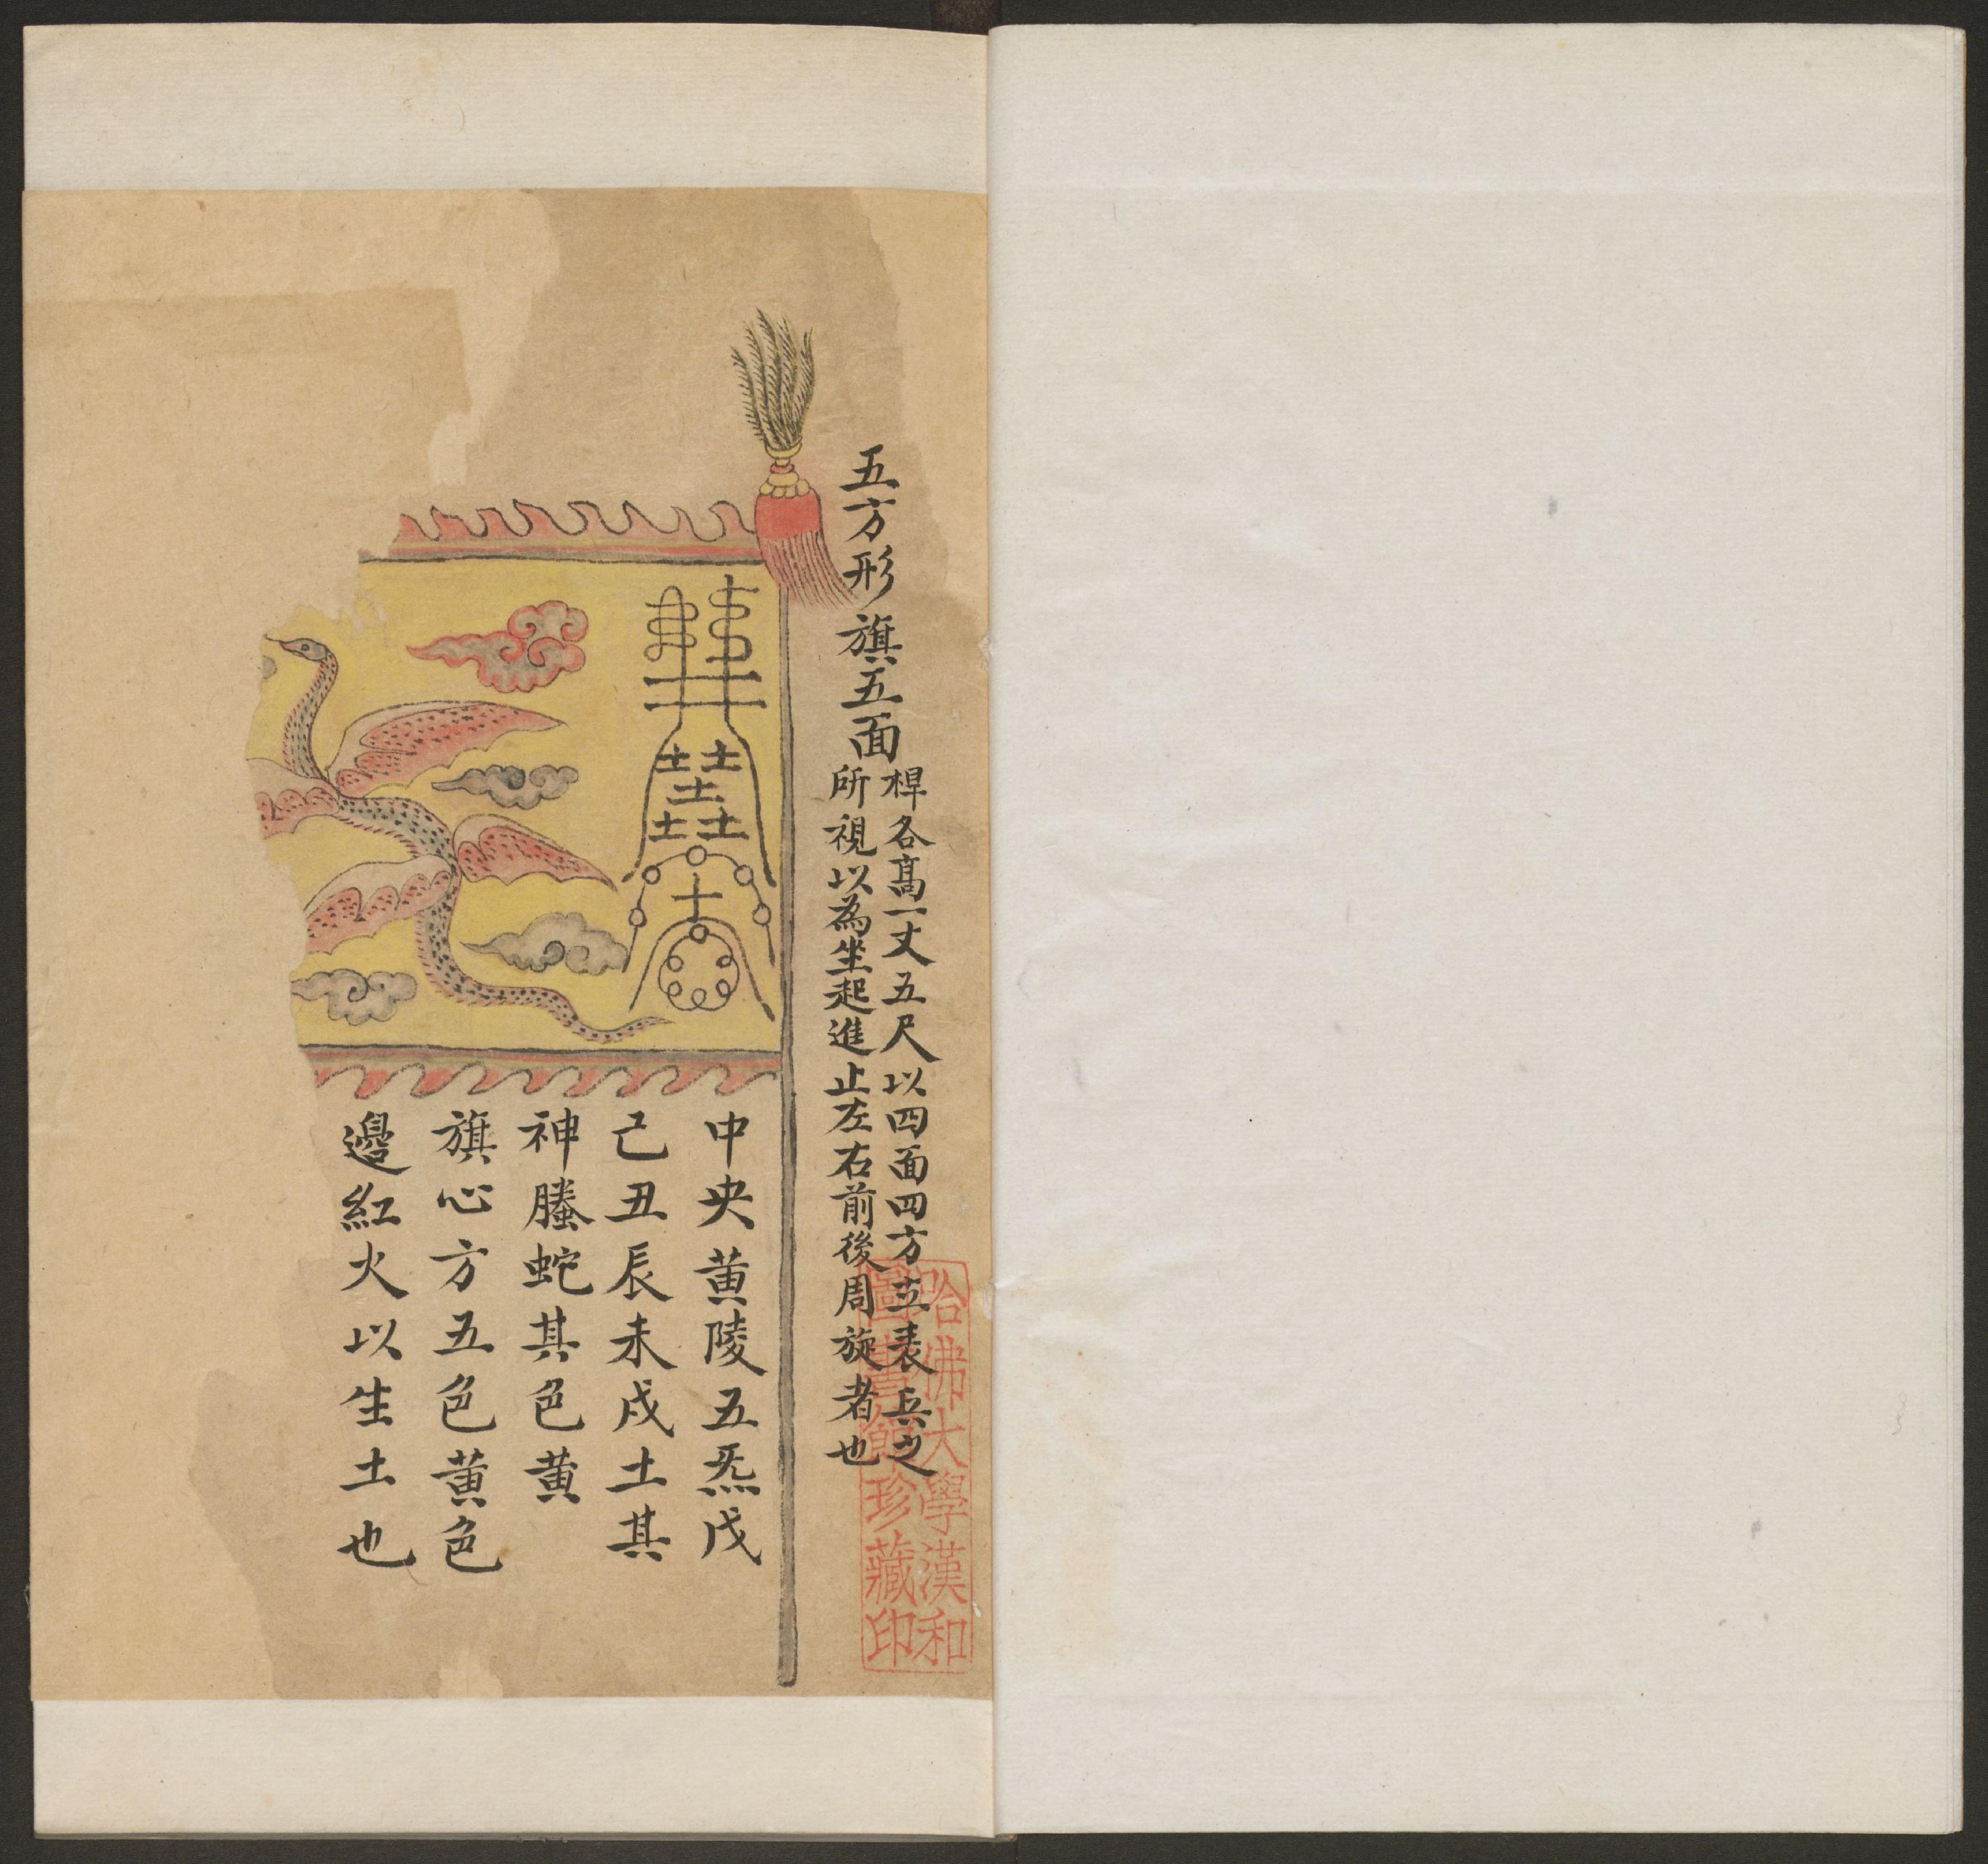 五方形旗五面
桿各高一丈五尺以四面四方立表兵之
所視以為坐起進止左右前後周旋者也
土土
土
土土
中央黄陵五炁戊
己丑辰未戌土其
神螣蛇其色黄
旗心方五色黄色
邊紅火以生土也
哈佛大學漢和
圖書館珍藏印